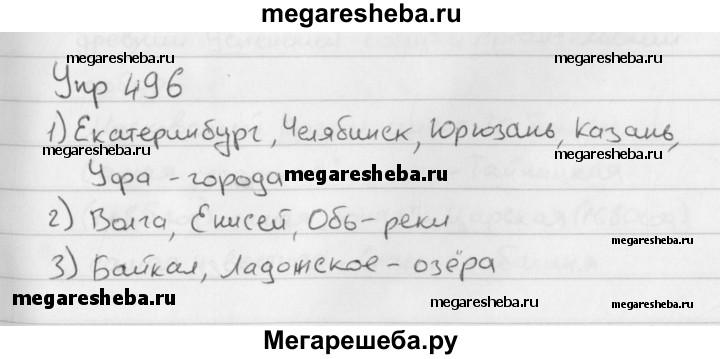 megaresheba.ru
Упр 496
megaresheba.ru megaresheba.ru
1) Екатеринбург, Челябинск, Юрюзань, Казань,
megaresheba.ru megaresheba.ru
Уфа - города megaresheba.ru
2) Волга, Енисей, Обь - реки
megaresheba.ru megaresheba.ru
3) Байкал, Ладожское - озёра
megaresheba.ru megaresheba.ru megaresheba.ru
Мегарешеба.ру